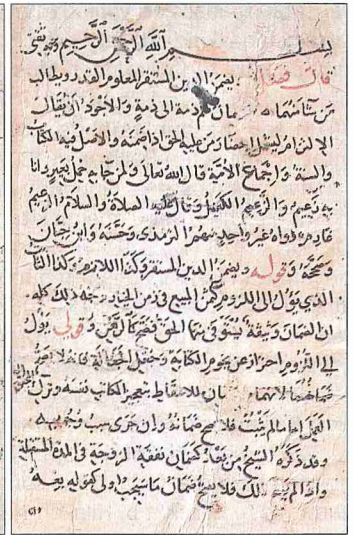 بسم الله الرحمن الرحيم وبه ثقتي
قال فصل يضمن الدين المستقر المعلوم القدر ويطالب
من شا منهما الضمان ضم ذمة الى ذمة والاجود ان يقال
الالتزام ليشمل احضار من عليه الحق اذا ضمنه والاصل فيه الكتاب
والسنة واجماع الامة قال الله تعالى ولمن جا به حمل بعير وانا
به زعيم والزعيم الكفيل وقال عليه الصلاة والسلام الزعيم
غارم رواه غير واحد منهم الترمذى وحسنه وابن حبان
وصححه وقوله ويضمن الدين المستقر وكذا اللازم وكذا الثابت
الذي يؤل الى اللزوم كثمن المبيع في زمن الخيار وجه ذلك كله
ان الضمان وثيقة يستوفى منها الحق فصح كالرهن وقولي يؤل
الى اللزوم احتراز عن نجوم الكتابة وجعل الجعالة فانه لا يجوز
ضمانهما لانهما للاسقاط بتعجيز الكاتب نفسه وترك
العمل اما ما لم يثبت فلا يصح ضمانه وان جرى سبب وجوبه
وقد ذكره الشيخ من بعد كضمان نفقة الزوجة في المدة المستقبلة
واذا لم يصح ذلك فلا يصح ضمان ما سيجب اولى كقوله بعه